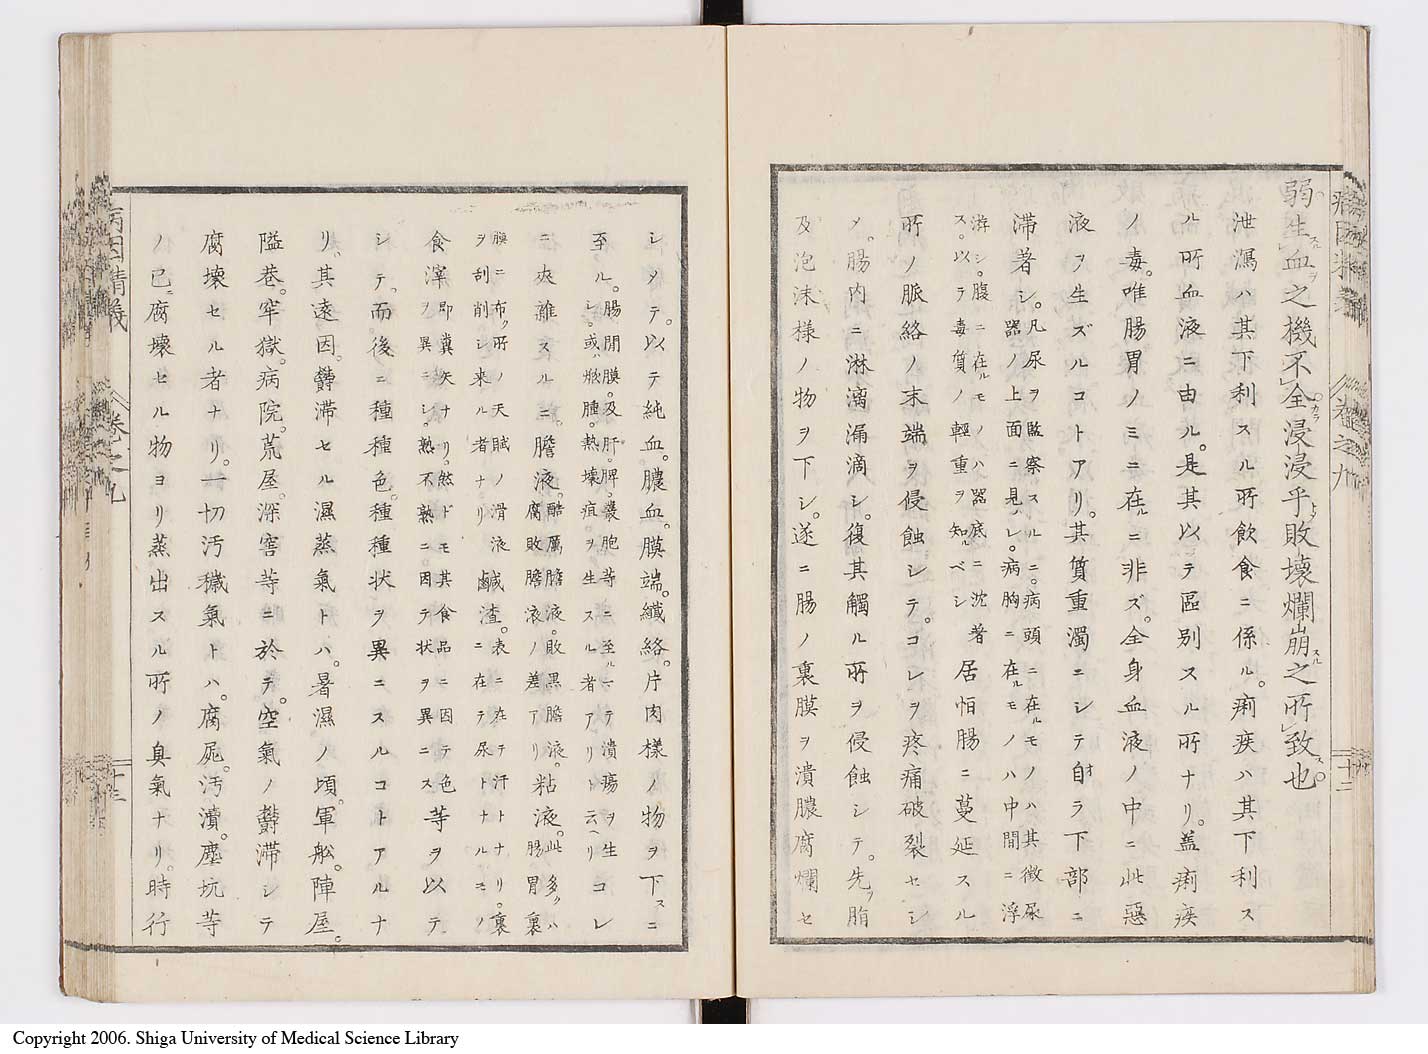 弱生血之機不全浸浸乎敗壊爛崩之所致也
泄瀉ハ其下利スル所飲食ニ係ル。痢疾ハ其下利ス
ル所血液ニ由ル。是其以テ區別スル所ナリ。蓋痢疾
ノ毒。唯腸胃ノミニ在ルニ非ズ。全身血液ノ中ニ此惡
液ヲ生ズルコトアリ。其質重濁ニシテ自ラ下部ニ
滞著シ。凡尿ヲ監察スルニ。病頭ニ在ルモノハ其徴尿
器ノ上面ニ見ハレ。病胸ニ在ルモノハ中間ニ浮
游シ。腹ニ在ルモノハ器底ニ沈著
ス。以テ毒質ノ輕重ヲ知ルベシ
居恒腸ニ蔓延スル
所ノ脈絡ノ末端ヲ侵蝕シテ。コレヲ疼痛破裂セシ
メ。腸内ニ淋漓漏滴シ。復其觸ル所ヲ侵蝕シテ。先ツ脂
及泡沫様ノ物ヲ下シ。遂ニ腸ノ裏膜ヲ潰膿腐爛セ
病因精義 巻之九 十二
シメテ。以テ純血。膿血。膜端。纖絡。片肉様ノ物ヲ下スニ
至ル。腸間膜。及肝。脾。嚢胞等ニ至ルニテ潰瘍ヲ生
シ。或ハ焮腫。熱壊疽ヲ生スル者アリト云ヘリ
コレ
ニ夾雑スルニ。膽液。酷厲膽液。敗黒膽液。
腐敗膽液ノ差アリ
粘液。此多クハ
腸胃裏
膜ニ布ク所ノ天賦ノ滑液
ヲ刮削シ来ル者ナリ
鹹渣。表ニ在テ汗トナリ。裏
ニ在テ尿トナルモノ
食滓即糞矢ナリ。然ドモ其食品ニ因テ色
ヲ異ニシ。熟不熟ニ因テ状ヲ異ニス
等ヲ以テ
シテ。而後ニ種種色。種種状ヲ異ニスルコトアルナ
リ。其遠因。欝滞セル濕蒸氣トハ。暑濕ノ頃。軍舩。陣屋。
隘巷。牢獄。病院。荒屋。深窖等ニ於テ。空氣ノ欝滞シテ
腐壊セル者ナリ。一切汚穢氣トハ。腐屍。汚瀆。塵坑等
ノ已ニ腐壊セル物ヨリ蒸出スル所ノ臭氣ナリ。時行
病因精義 巻之九 十三
Copyright 2006. Shiga University of Medical Science Library